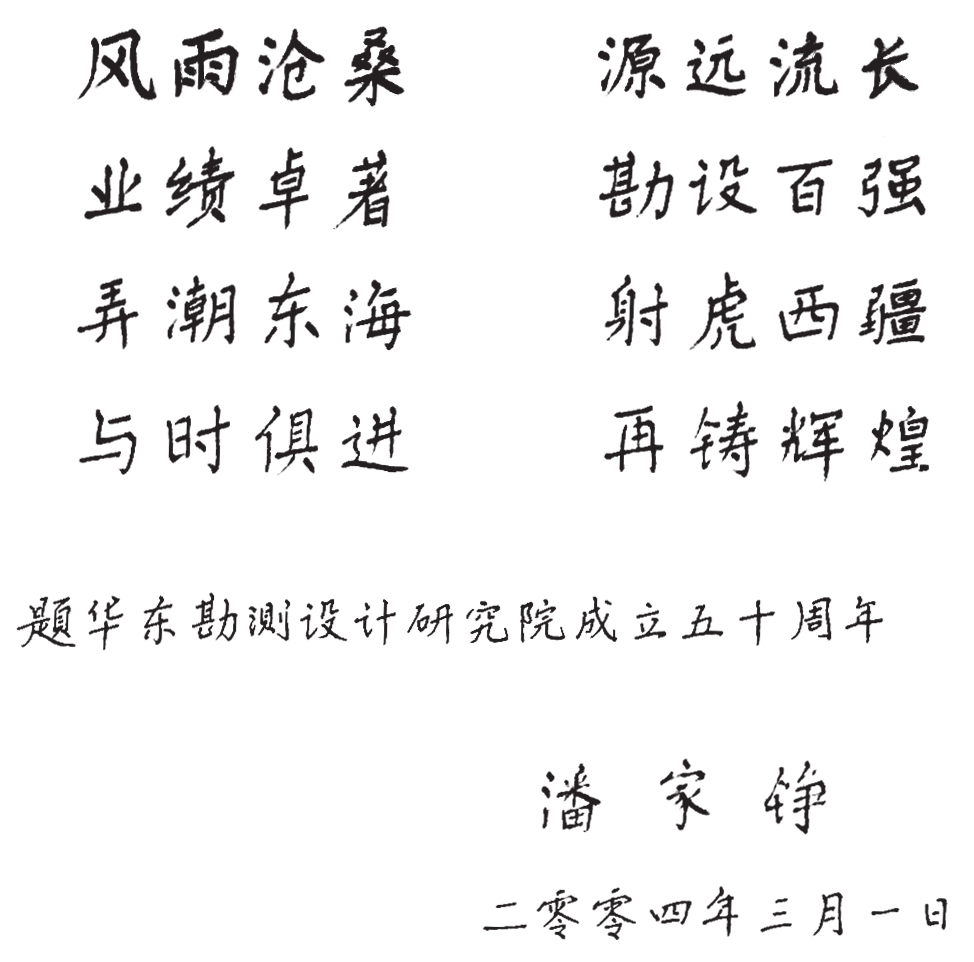 风雨沧桑 源远流长
业绩卓著 勘设百强
弄潮东海 射虎西疆
与时俱进 再铸辉煌
题华东勘测设计研究院成立五十周年
潘家铮
二零零四年三月一日